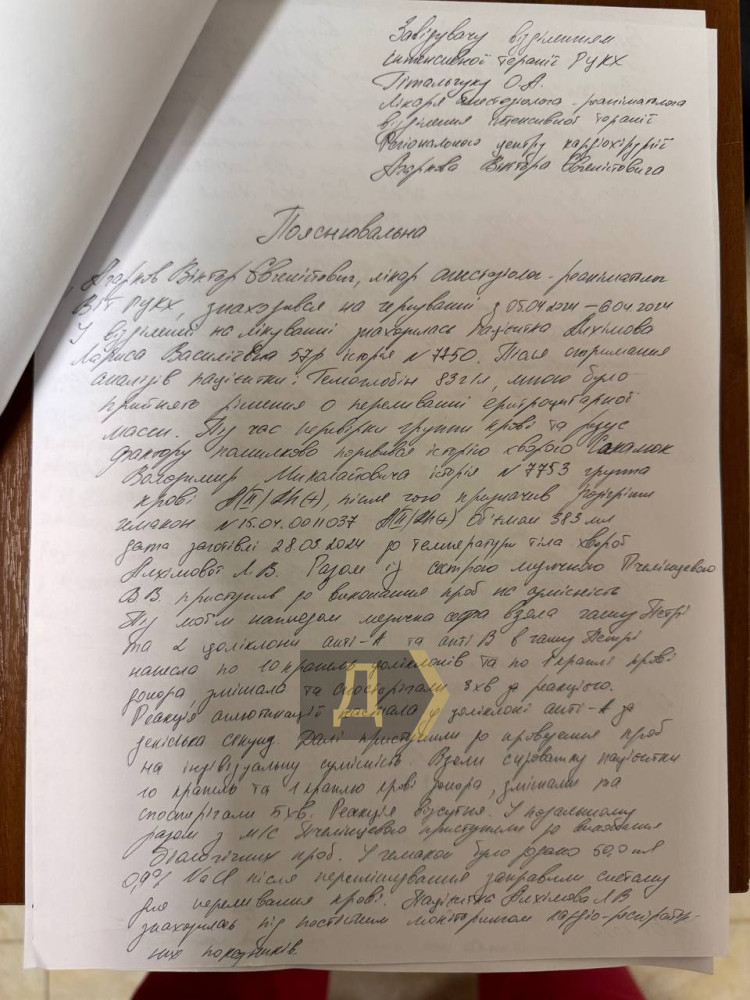 Завідувачу відділенням
інтенсивної терапії РЦКХ
О.А.
Лікаря анестезіолога-реаніматолога
відділення інтенсивної терапії
Регіонального центру кардіохірургії
Азаркова Віктора Євгенійовича
Пояснювальна
, Азарков Віктор лікар анестезіолог-реаніматолог
ВІТ РЦКХ, знаходився на чергуванні з 05.04.2024 – 6.04.2024
У відділенні на лікуванні знаходилась пацієнтка Анхімова
Лариса Василівна 57р історія N 7750. Після отримання
аналізів пацієнтки: Гемоглобін 83 г/л, мною було
прийнято рішення о переливанні еритроцитарної
масси. Під час перевірки группи крові та резус
фактору помилково перевірив історію хворого
Володимир Миколайовича історія N 7753 группа
крові А(ІІ) Rh(+), після чого призначив підігріти
гемакон N 15.04.0011037 А(ІІ) Rh(+) Об'ємом 383 мл
дата заготівлі 28.03.2024 до температури тіла хворої
Анхімової Л.В. Разом із сестрою медичною Пчелінцевою
В.В. приступив до виконання проб на сумісність
Під моїм наглядом медична сестра взяла чашку Петрі
та 2 цоліклони анті-А та анті В в чашку Петрі
нанесла по 10 крапель цоліклонів та по 1 краплі крові
донора, змішала та спостерігали 3хв за реакцією.
Реакція аглютинації настала у цоліклоні анті-А за
декілька секунд. Далі приступили до проведення проб
на індивідуальну сумісність. Взяли сироватку пацієнтки
10 крапель та 1 краплю крові донора, змішали та
спостерігали 5хв. Реакція відсутня. У подальшому
разом з м/с Пчелінцевою приступили до виконання
біологічних проб. У гемакон було додано 50,0 мл
0,9% NaCl після перемішування заправили систему
для переливання крові. Пацієнтка Анхімова Л.В
знаходилась під постійним моніторингом кардіо-респіратор-
них показників.
Д